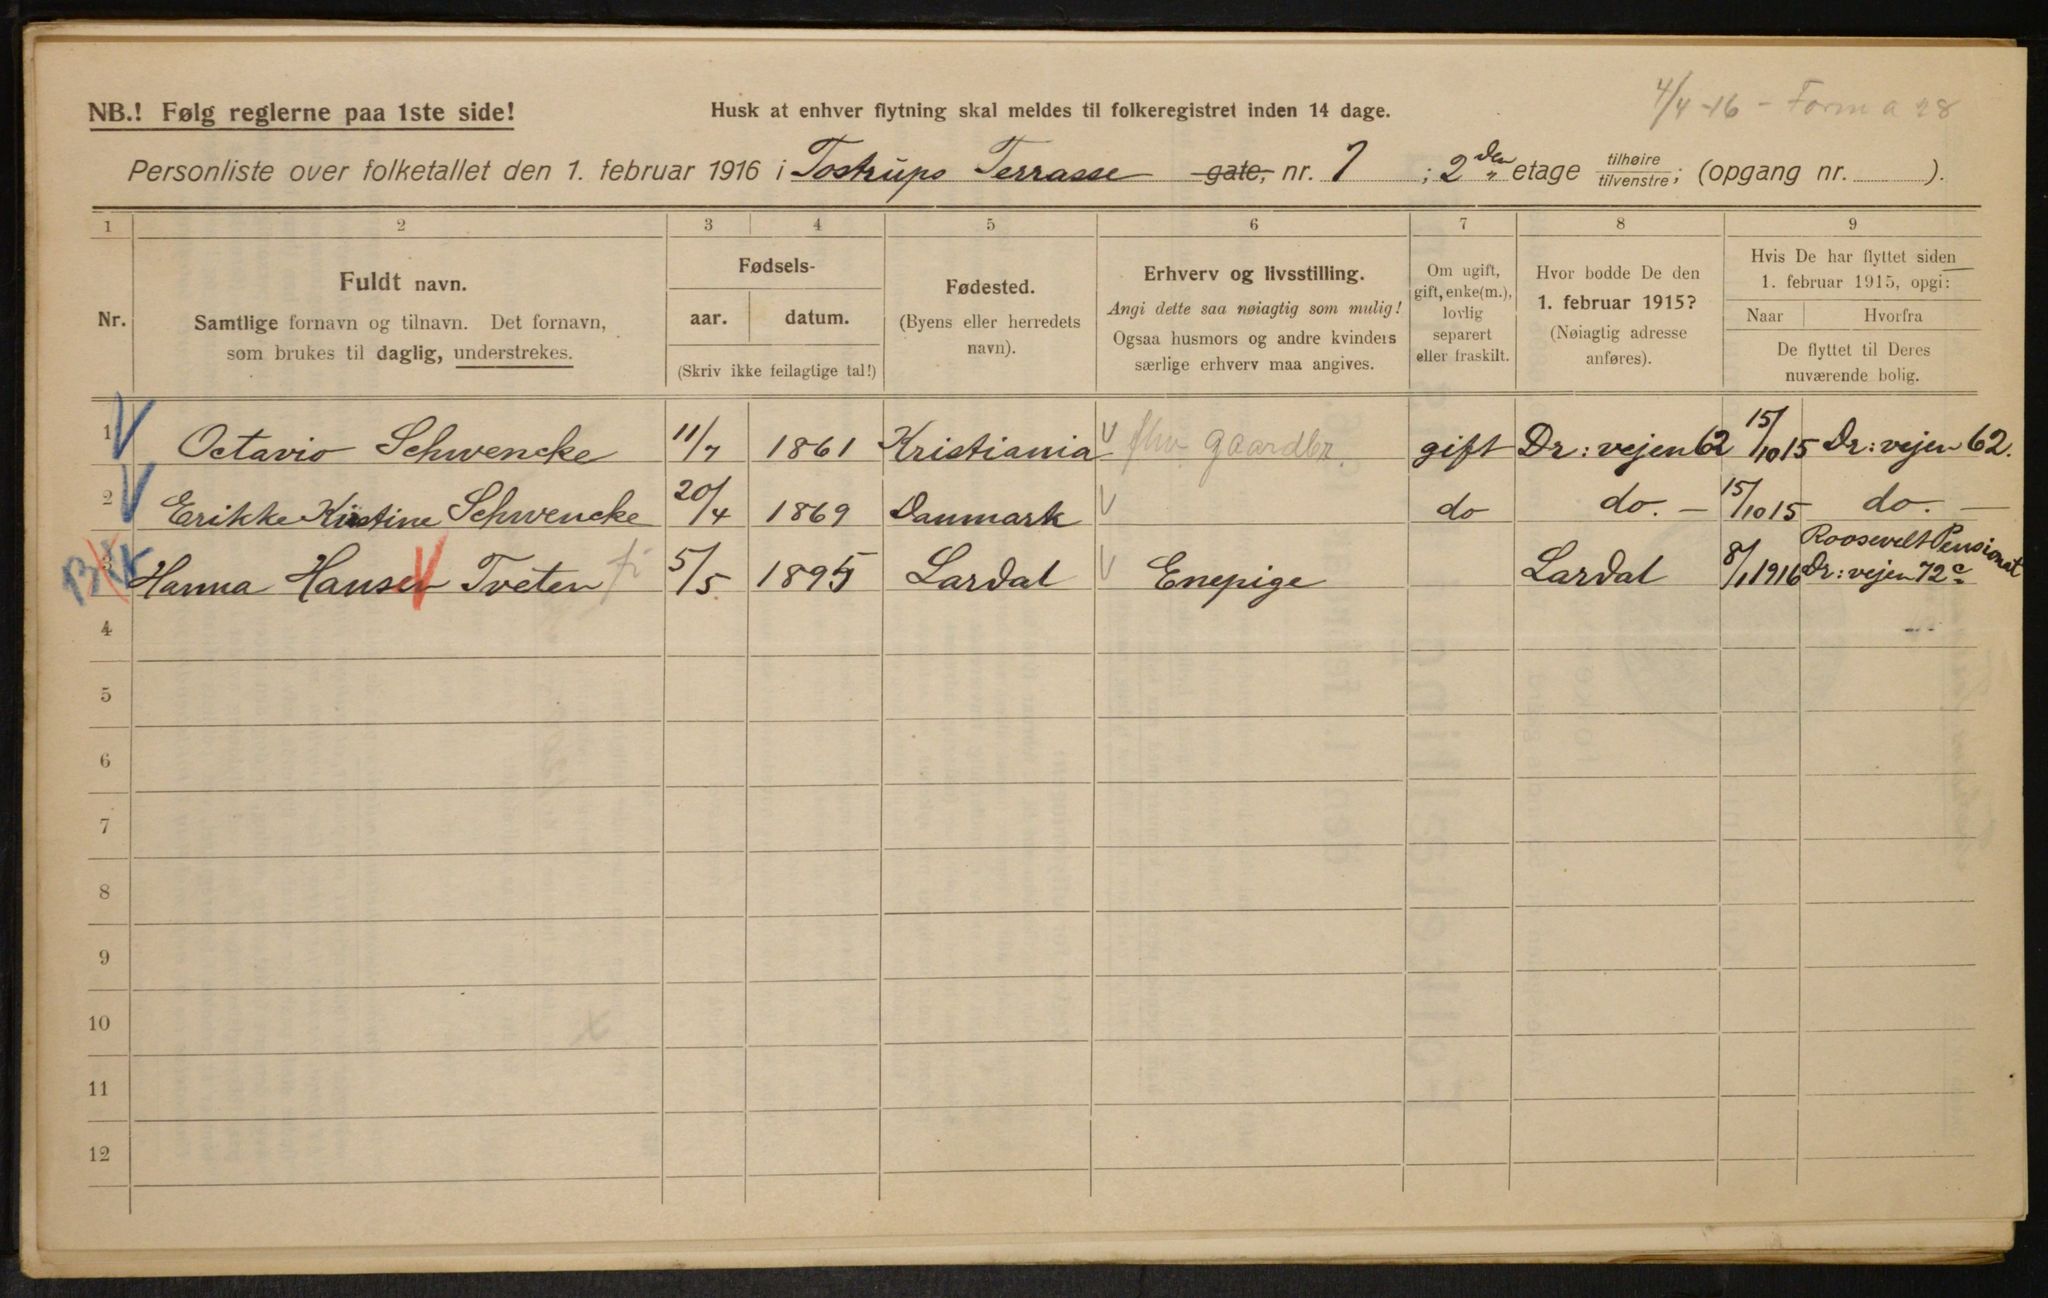 4/4-16 - Form a 28
NB.! Følg reglerne paa 1ste side!
Husk at enhver flytning skal meldes til folkeregistret inden 14 dage.
Personliste over folketallet den 1. februar 1916 i Tostrups Terrasse gate, nr. 7 ; 2den etage tilhøire tilvenstre; (opgang nr. ).
1 2 3 4 5 6 7 8 9
Nr.
Fuldt navn.
Samtlige fornavn og tilnavn. Det fornavn,
som brukes til daglig, understrekes.
Fødsels-
aar. datum.
(Skriv ikke feilagtige tal!)
Fødested.
(Byens eller herredets
navn).
Erhverv og livsstilling.
Angi dette saa nøiagtig som mulig!
Ogsaa husmors og andre kvinders
særlige erhverv maa angives.
Om ugift,
gift, enke(m.),
lovlig
separert
eller fraskilt.
Hvor bodde De den
1. februar 1915?
(Nøiagtig adresse
anføres).
Hvis De har flyttet siden
1. februar 1915, opgi:
Naar Hvorfra
De flyttet til Deres
nuværende bolig.
1 Octavio Schwencke 11/7 1861 Kristiania fhv. gaardbr. gift Dr: vejen 62 15/10 15 Dr: vejen 62.
2 Erikke Kirstine Schwencke 20/4 1869 Danmark do do. — 15/10 15 do. —
3 Hanna Hansen Tveten 5/5 1895 Lardal Enepige Lardal 8/1 1916 Roosevelt Pensionat
Dr: vejen 72c
4
5
6
7
8
9
10
11
12